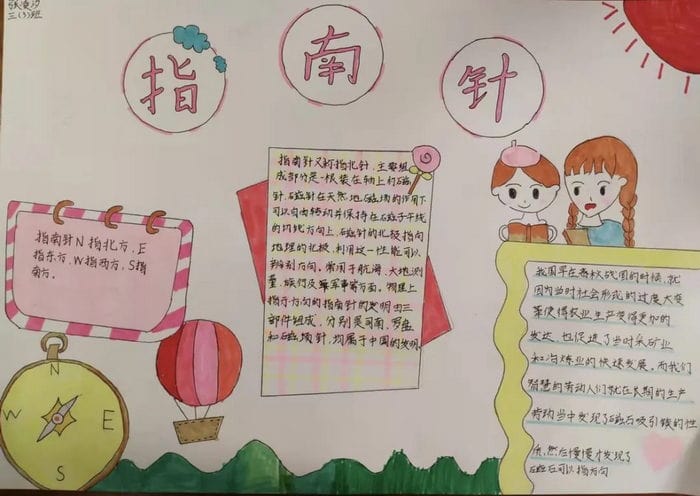 张凌汐
三(3)班
指南针
指南针N指北方,E
指东方,W指西方,S指
南方。
指南针又称指北针,主要组
成部分是一根装在轴上的磁
针,磁针在天然地磁场的作用下
可以自由转动并保持在磁子午线
的切线方向上,磁针的北极指向
地理的北极,利用这一性能可以
辨别方向。常用于航海、大地测
量、旅行及军事等方面。物理上
指示方向的指南针的发明由三
部件组成,分别是司南、罗盘
和磁项针,均属于中国的发明
我国早在春秋战国的时候,就
因为当时社会形式的过度大变
革使得农业生产变得更加的
发达,也促进了当时采矿业
和冶炼业的快速发展。而我们
智慧的劳动人们就在长期的生产
劳动当中发现了磁石吸引铁的性
质,然后慢慢才发现了
磁石可以指方向
N
W
E
S